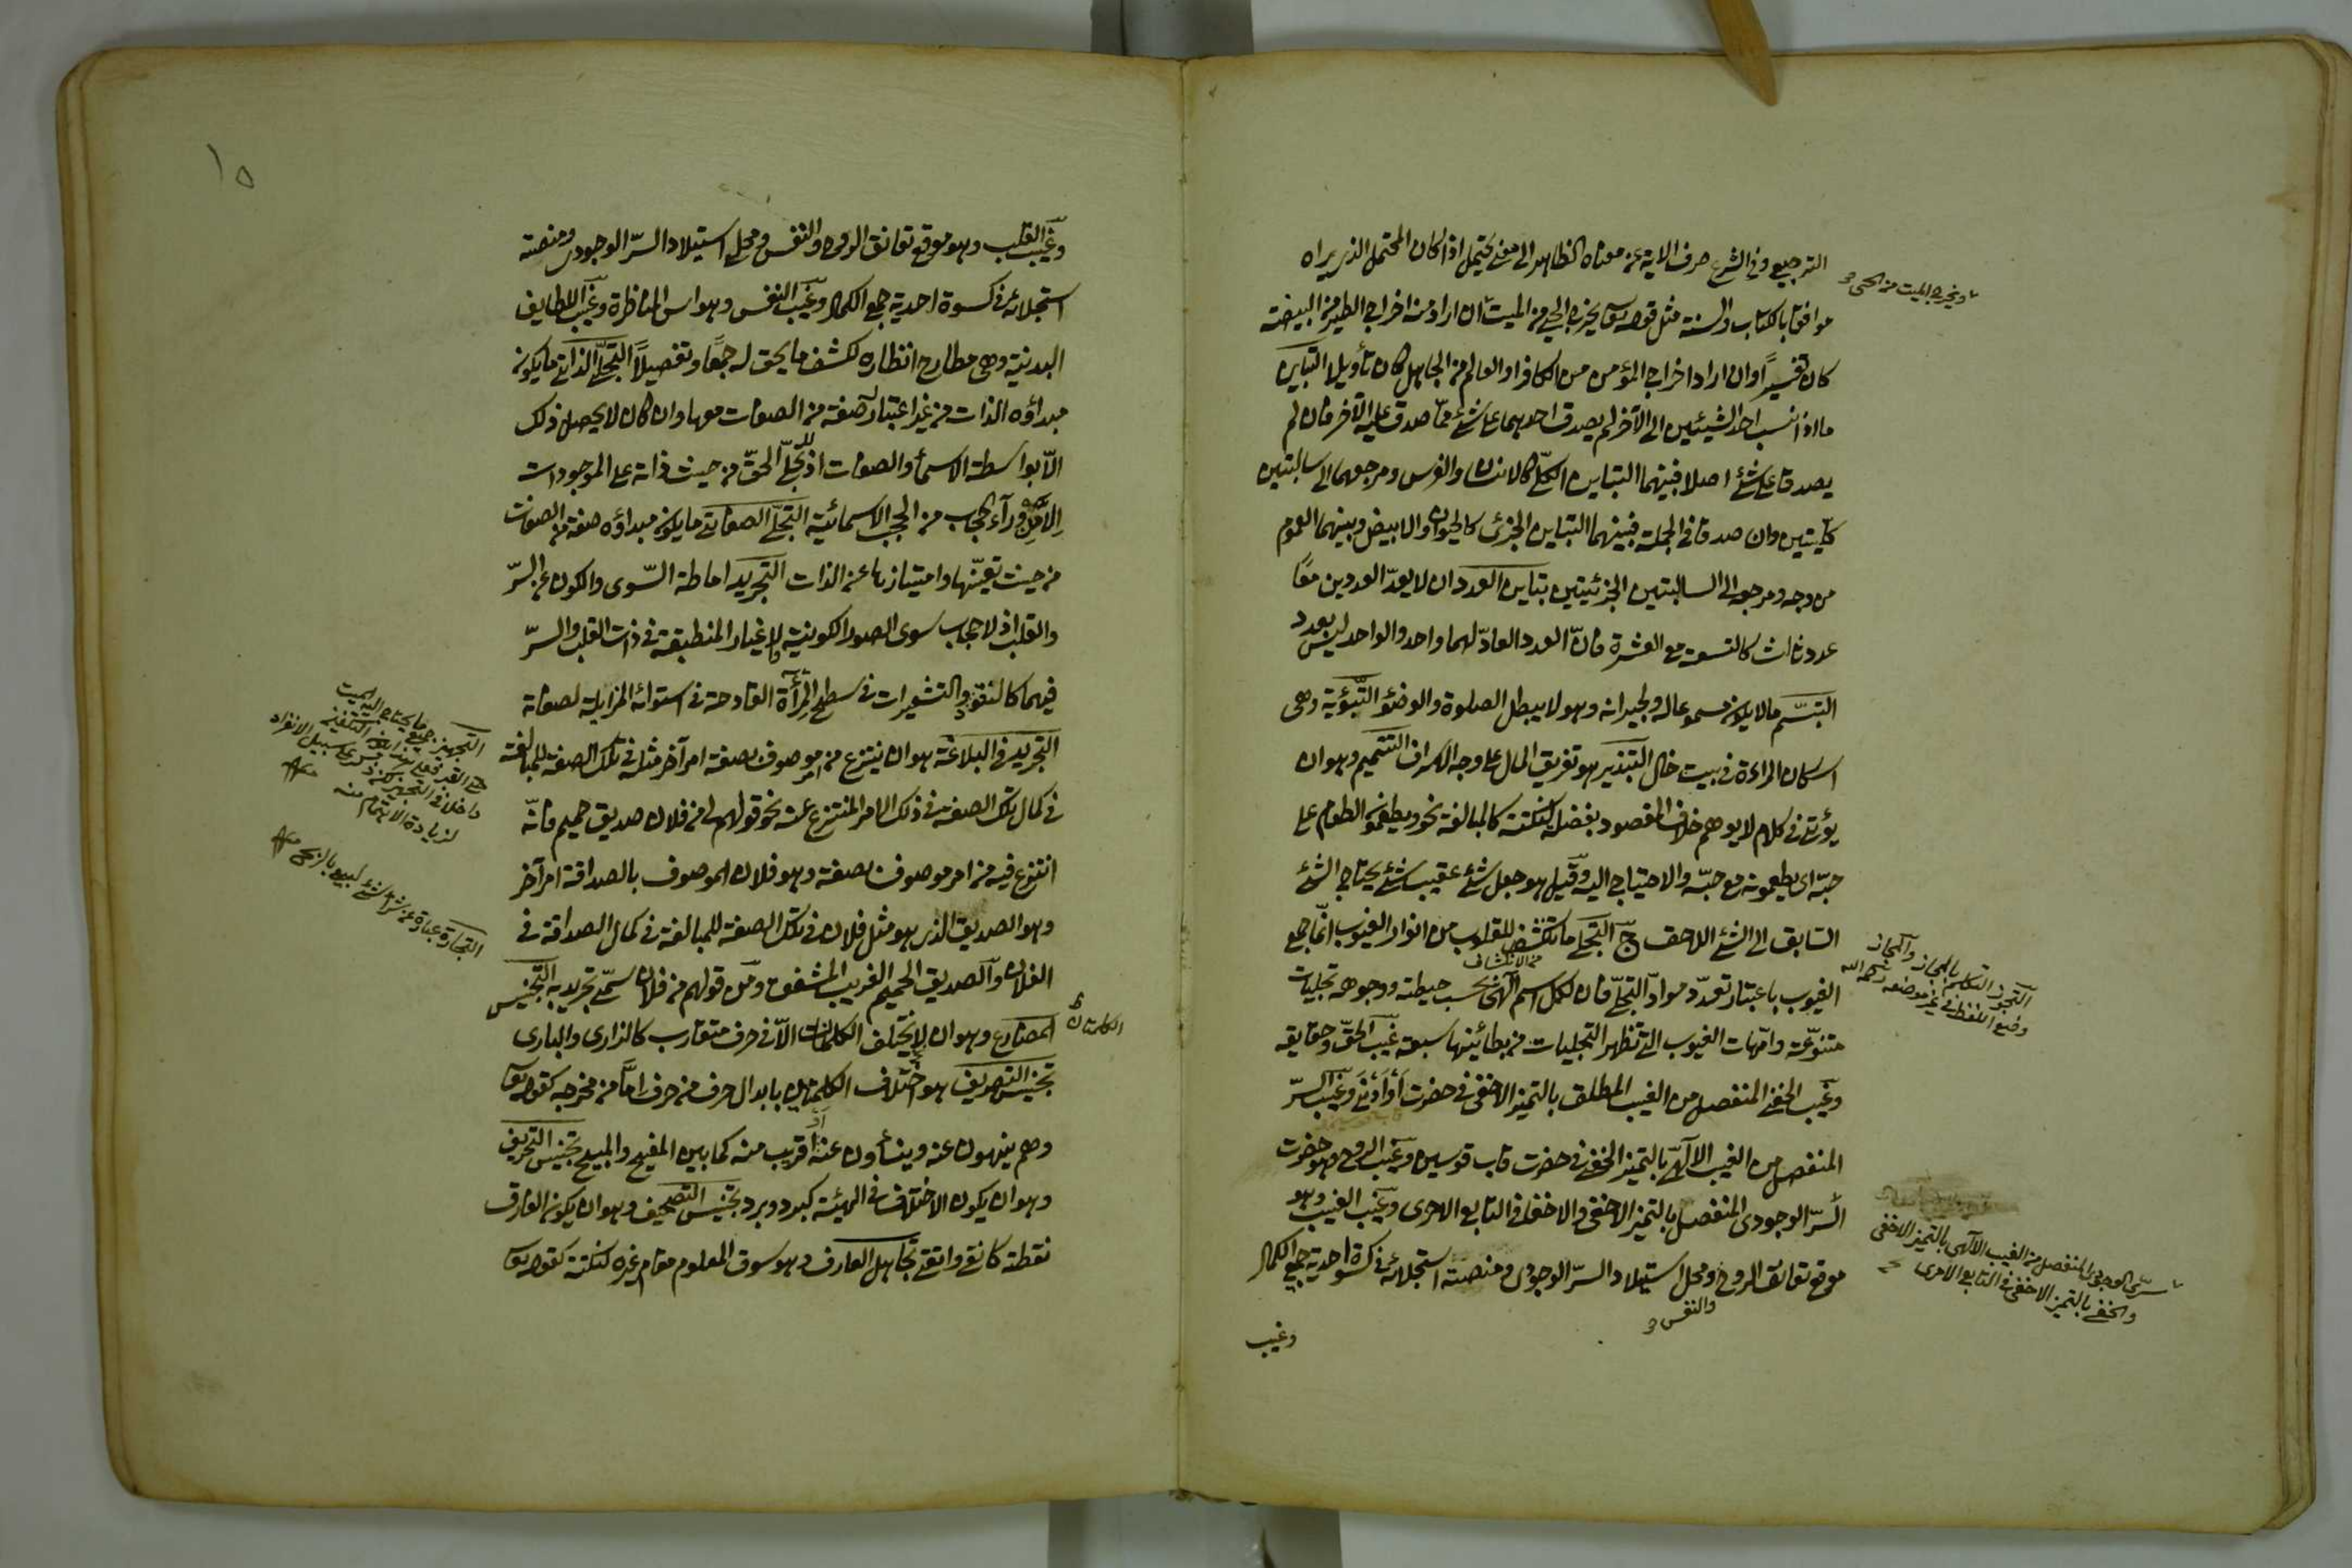 الترجيع وفى الشرع صرف الاية عن معناه الظاهر الى معنى يحتمل اذا كان المحتمل الذى يراه
موافقا بالكتاب والسنة مثل قوله تعا يخرج الحى من الميت ان اراد منه اخراج الطير من البيضة
ويخرج الميت من الحى
كان تفسيرا وان اراد اخراج المؤمن من الكافر او العالم من الجاهل كان تأويلا التباين
ما اذا نسب احد الشيئين الى الآخر لم يصدق احدهما على شئ مما صدق عليه الآخر فان لم
يصدقا على شئ اصلا فبينهما التباين الكلى كالانسان والفرس ومرجعهما الى سالبتين
كليتين وان صدقا فى الجملة فبينهما التباين الجزئى كالحيوان والابيض وبينهما العموم
من وجه ومرجعه الى السالبتين الجزئيتين بتاين العدد ان لا يعد العددين معا
عدد ثالث كالتسعة مع العشرة فان العدد العاد لهما واحد والواحد ليس بعدد
التبسم ما لا يكون مسموعا له ولجيرانه وهو لا يبطل الصلوة والوضؤ التبوئية وهى
اسكان المراءة فى بيت خال التبذير هو تفريق المال على وجه الاسراف التتميم وهو ان
يؤتى فى كلام لا يوهم خلاف المقصود بفضلة لنكتة كالمبالغة نحو ويطعمون الطعام على
حبه اى يطعمونه مع حبه والاحتياج اليه وقيل هو جعل شئ عقيب شئ يحتاج الشئ
السابق الى الشئ اللاحق ج التجلى ما ينكشف للقلوب من انوار الغيوب انما جمع
من الانكشاف
الغيوب باعتبار تعدد موارد التجلى فان لكل اسم الهى بحسب حيطته ووجوهه تجليات
متنوعة وامهات الغيوب التى تظهر التجليات من بطائنها سبعة غيب الحق وحقايقه
وغيب الخفى المنفصل من الغيب المطلق بالتميز الاخفى فى حضرت أو أدنى وغيب السر
المنفصل من الغيب الالهى بالتميز الخفى فى حضرت قاب قوسين وغيب الروح وهو حضرت
السر الوجودى المنفصل بالتميز الاخفى والاخفى فى التابع الامرى وغيب الغيب وهو
موقع تعانق الروح ومحل استيلاد السر الوجودى ومنصته استجلائه فى كسوة احدية جمع الكمال
والنفس
وغيب
التجوز التكلم بالمجاز والمجاز
وضع اللفظ فى غير موضعه
سرى الوجودى المنفصل من الغيب الالهى بالتميز الاخفى
والخفى بالتميز الاخفى فى التابع الامرى
١٥
وغيب القلب وهو موقع تعانق الروح والنفس ومحل استيلاد السر الوجودى ومنصته
استجلائه فى كسوة احدية جمع الكمال وغيب النفس وهو انس المناظرة وغيب اللطايف
البدنية وهى مطارح انظاره لكشف ما يحق له جمعا وتفصيلا التجلى الذاتى ما يكون
مبداؤه الذات من غير اعتبار صفة من الصفات معها وان كان لا يحصل ذلك
الا بواسطة الاسمأ والصفات اذ لا يتجلى الحق من حيث ذاته على الموجودات
الا من ورآء حجاب من الحجب الاسمائية التجلى الصفاتى ما يكون مبداؤه صفة من الصفات
من حيث تعينها وامتيازها عن الذات التجريد اماطة السوى والكون عن السر
والقلب اذ لا حجاب سوى الصور الكونية والاغيار المنطبقة فى ذات القلب والسر
فيهما كالنتوء والتشعيرات فى سطح المرآة القادحة فى استوائه المزايلة لصفائه
التجريد فى البلاغة هو ان ينتزع من امر موصوف بصفة امر آخر مثله فى تلك الصفة للمبالغة
فى كمال تلك الصفة فى ذلك الامر المنتزع عنه نحو قولهم لى من فلان صديق حميم فانه
انتزع فيه من امر موصوف بصفة وهو فلان الموصوف بالصداقة امر آخر
وهو الصديق الذى هو مثل فلان فى تلك الصفة للمبالغة فى كمال الصداقة فى
الفلان والصديق الحميم القريب المشفق ومن قولهم من فلان تسمى تجريدية التجنيس
المضارع وهو ان لا يختلف الكلمتان الا فى حرف متقارب كالدارى والبارى
الكلمتان
تجنيس التصريف هو اختلاف الكلمتين بابدال حرف من حرف اما من مخرجه كقوله تعا
وهم ينهون عنه وينأون عنه او قريب منه كما بين المفيح والمبيح تجنيس التحريف
وهو ان يكون الاختلاف فى الهيئة كبرد وبرد تجنيس التصحيف وهو ان يكون الفارق
نقطة كانقى واتقى تجاهل العارف وهو سوق المعلوم مقام غيره لنكتة كقوله تعا
التجهيز جميع ما يحتاج اليه الميت
لزيادة الاهتمام منه
التجارة عبارة عن شراء شئ ليبيع بالربح